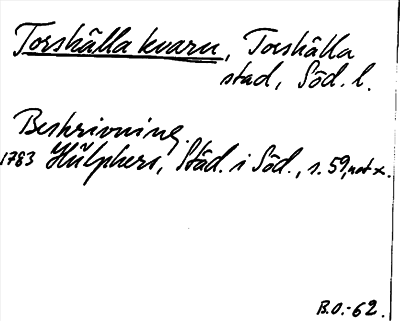 Torshälla kvarn, Torshälla
stad, Söd. l.
Beskrivning.
1783 Hülphers, Städ. i Söd., s. 59, not x.
B.O.-62.